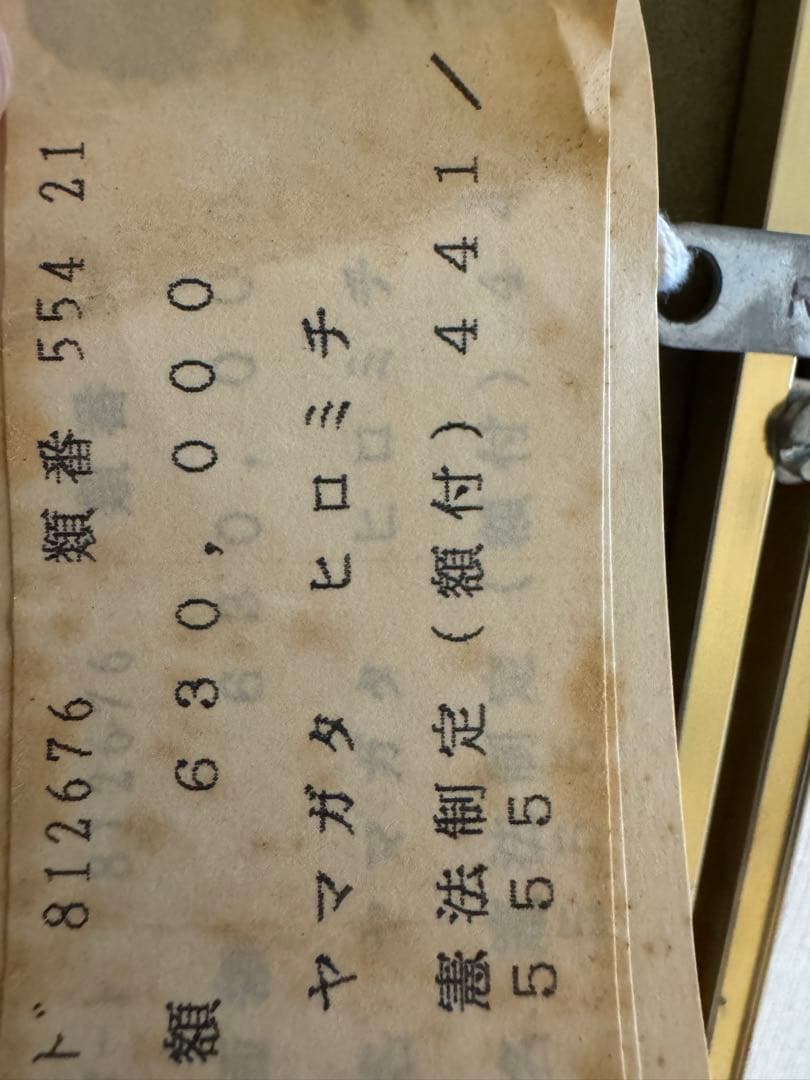 ド 812676 類番 554 21
額 630,000
ヤマガタ ヒロミチ
憲法制定(額付)441/
555